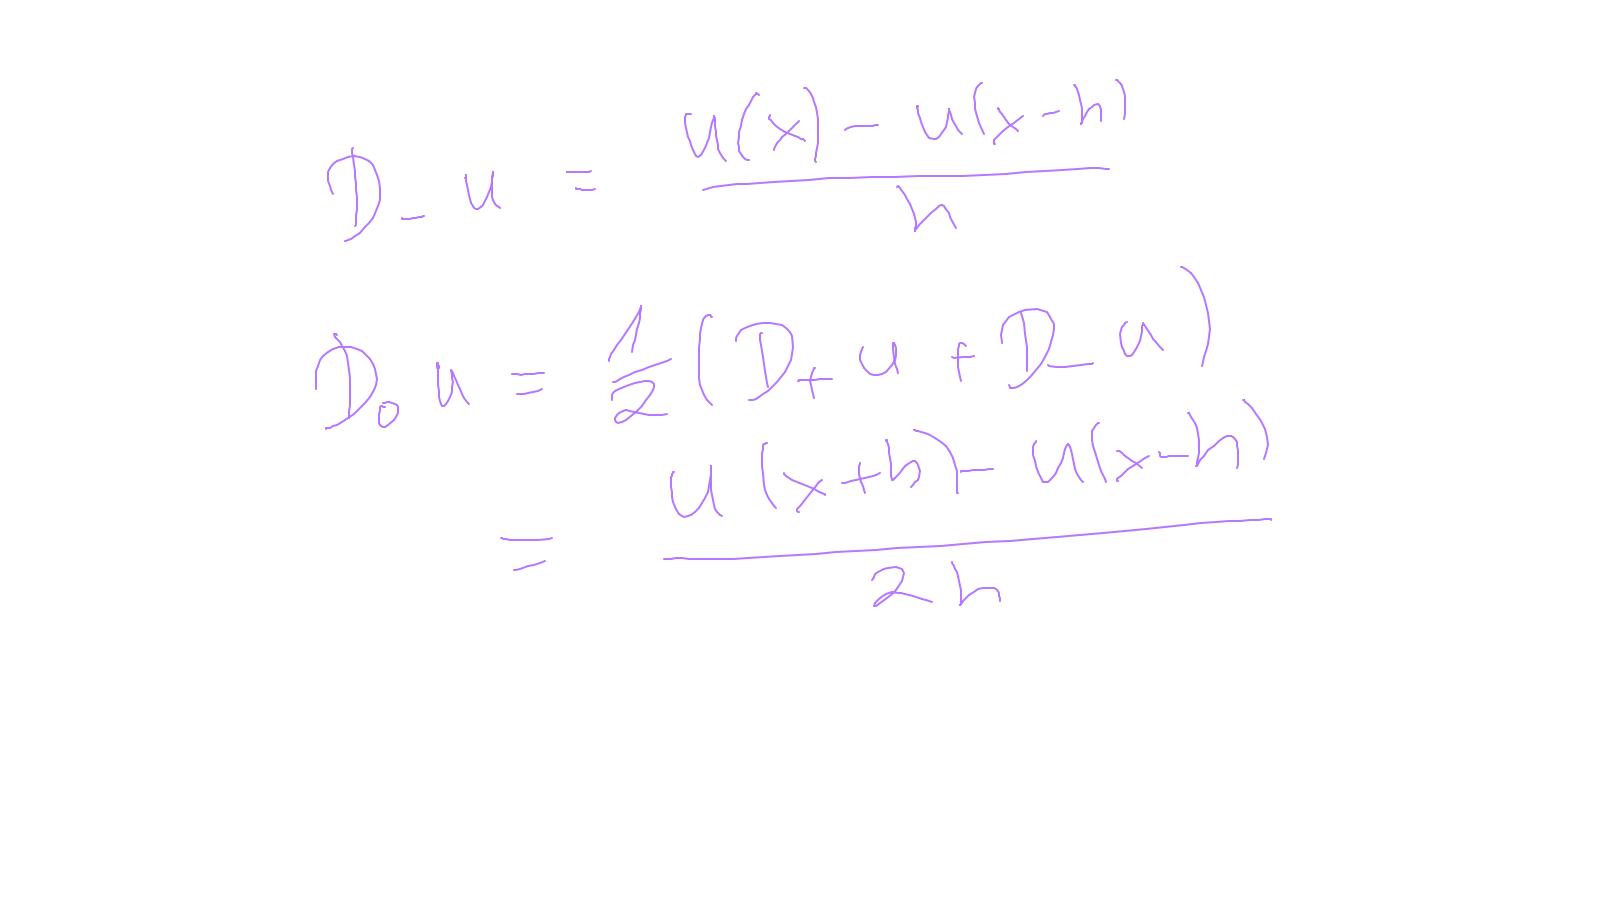 D_- u = \frac{u(x) - u(x-h)}{h}
D_0 u = \frac{1}{2} (D_+ u + D_- u)
= \frac{u(x+h) - u(x-h)}{2h}